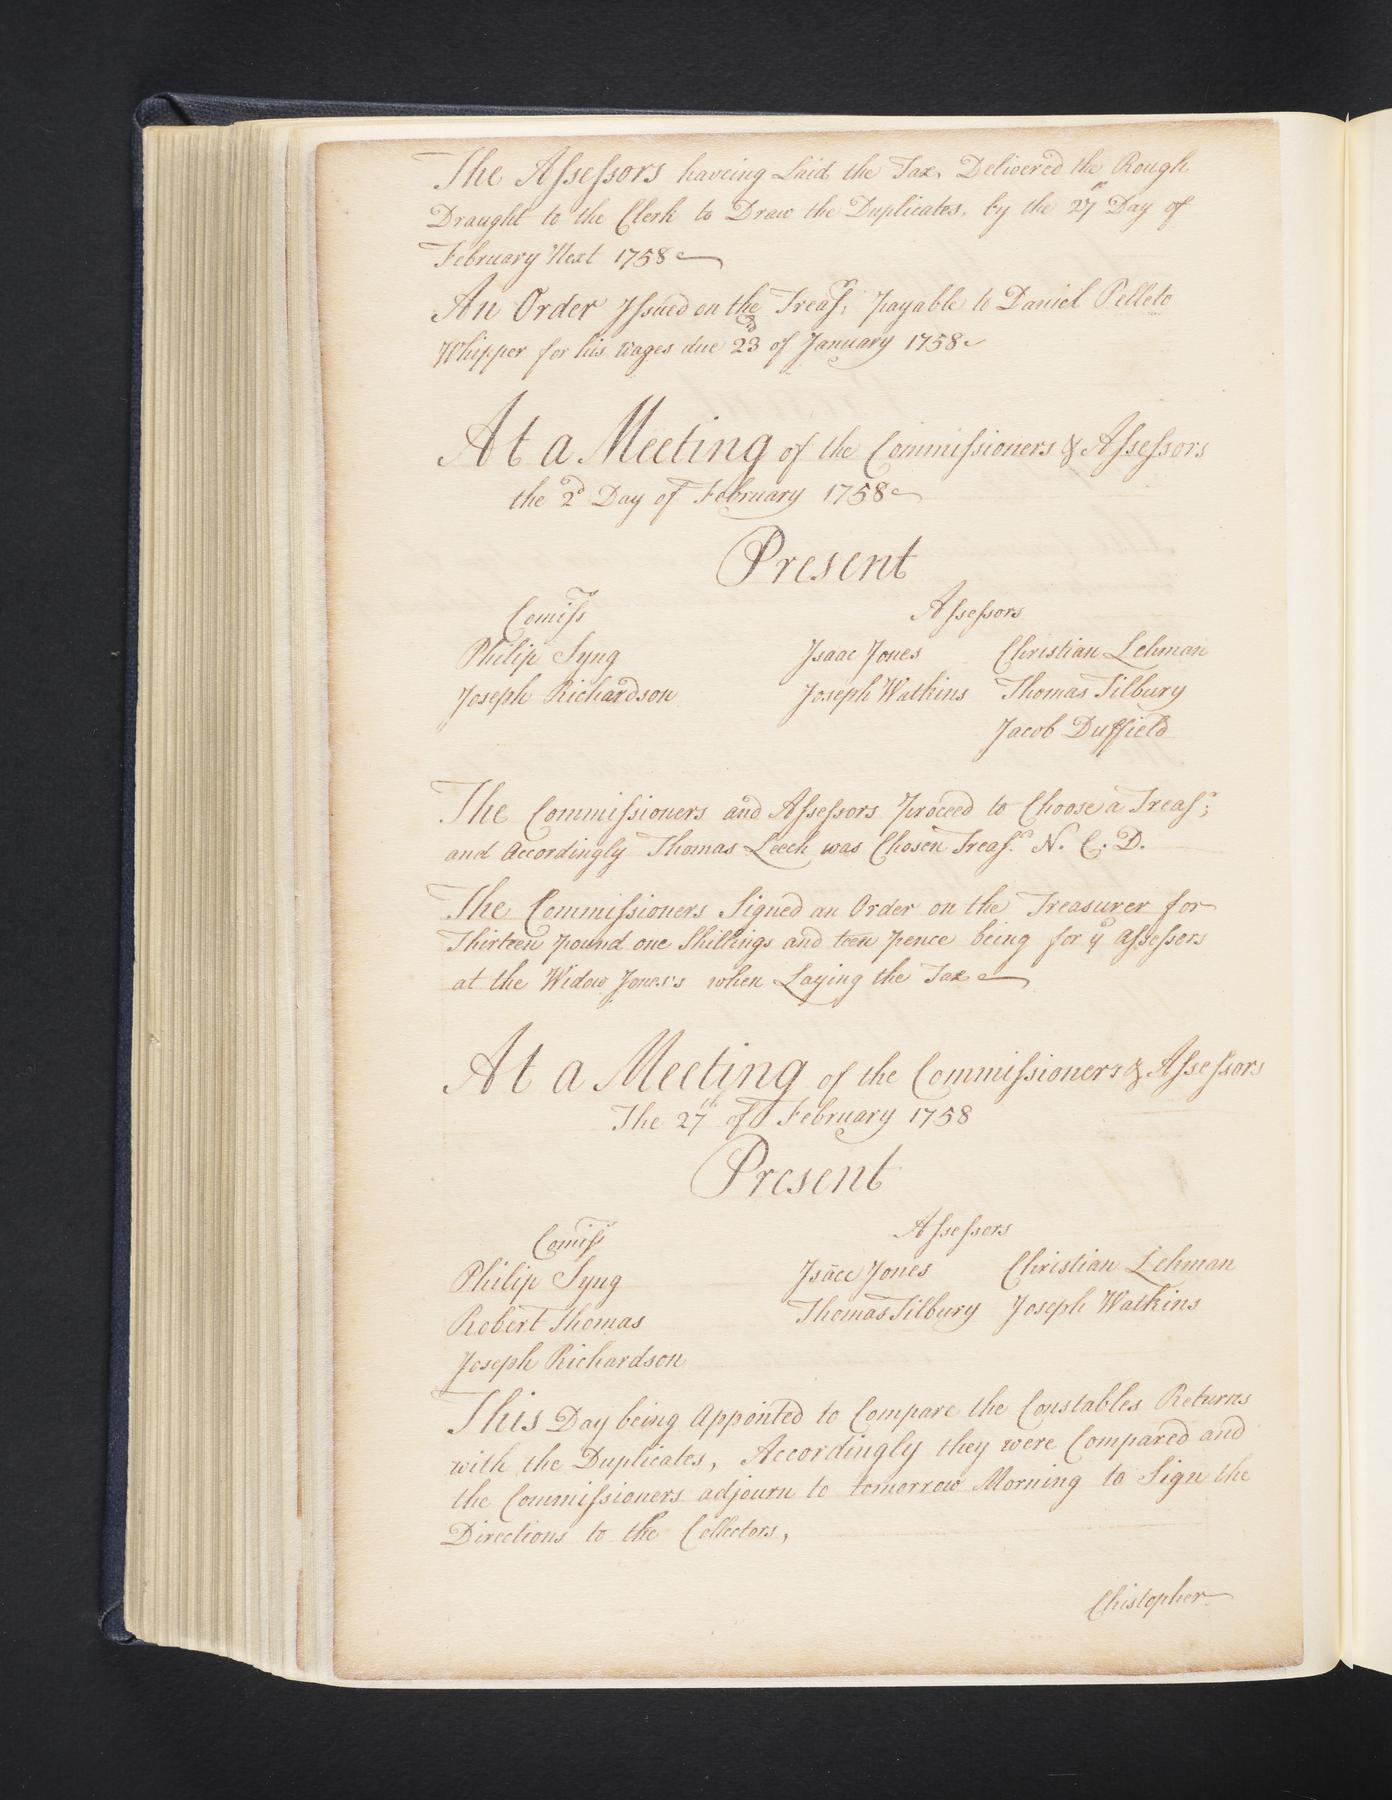 The Assessors haveing Laid the Tax, Delivered the Rough
Draught to the Clerk to Draw the Duplicates, by the 27th Day of
February Next 1758
An Order Issued on the Treasr; payable to Daniel Pelleto
Whipper for his Wages due 23d of January 1758
At a Meeting of the Commissioners & Assessors
the 2d Day of February 1758
Present
Comissrs Assessors
Philip Syng Isaac Jones Christian Lehman
Joseph Richardson Joseph Watkins Thomas Tilbury
Jacob Duffield
The Commissioners and Assessors proceed to Choose a Treasr;
and Accordingly Thomas Leech was Chosen Treasr. N. C. D.
The Commissioners Signed an Order on the Treasurer for
Thirteen pound one Shillings and teen pence being for ye Assessors
at the Widow Jones's when Laying the Tax
At a Meeting of the Commissioners & Assessors
The 27th of February 1758
Present
Comissrs Assessors
Philip Syng Isaac Jones Christian Lehman
Robert Thomas Thomas Tilbury Joseph Watkins
Joseph Richardson
This Day being Appointed to Compare the Constables Returns
with the Duplicates, Accordingly they were Compared and
the Commissioners adjourn to tomorrow Morning to Sign the
Directions to the Collectors,
Chistopher